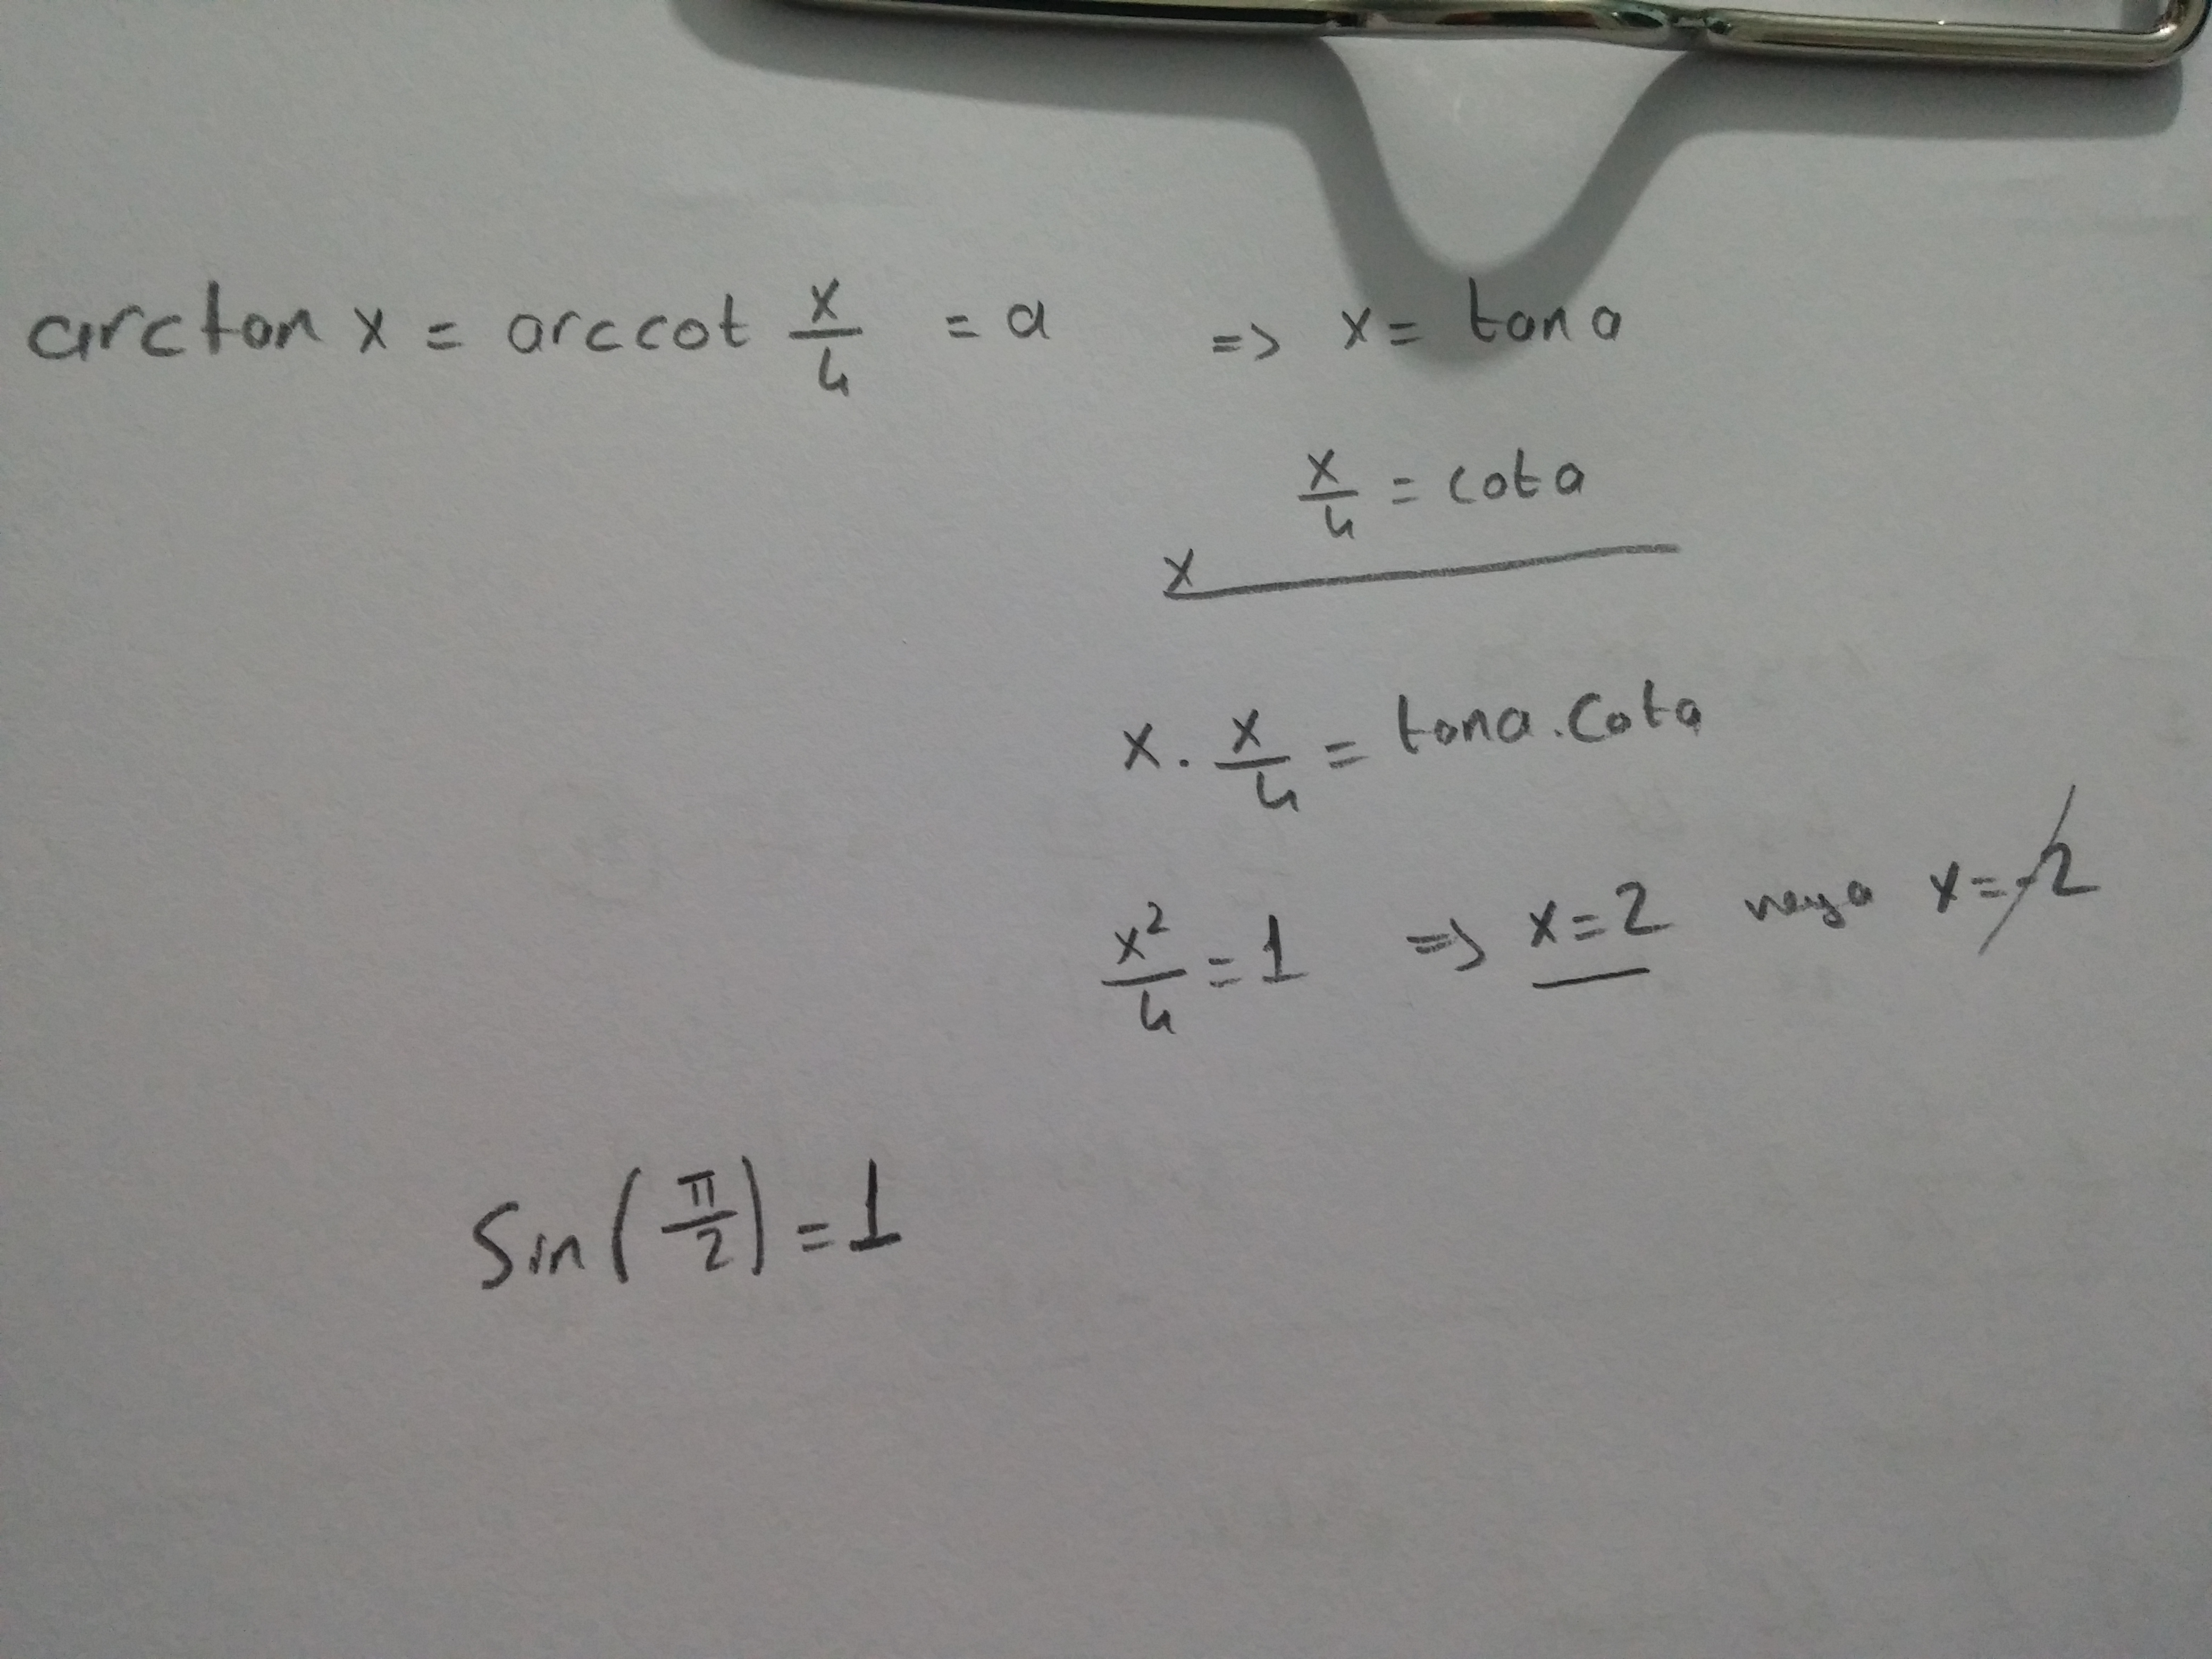 arctan x = arccot x/4 = a => x = tan a
x/4 = cot a
x
x . x/4 = tana . Cota
x²/4 = 1 => x = 2 veya x = -2
Sin(π/2) = 1